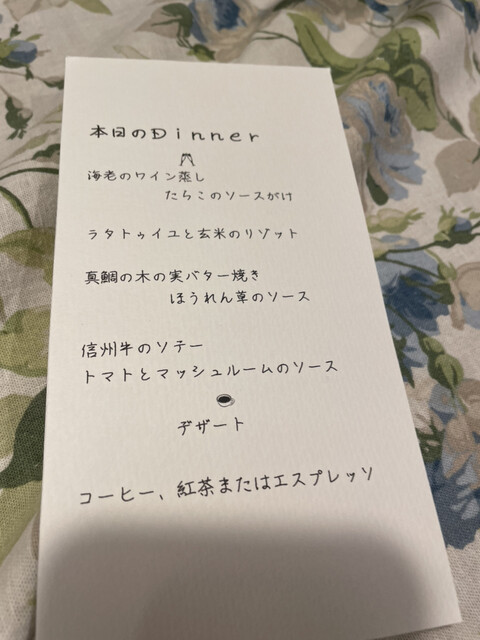 本日のDinner
海老のワイン蒸し
たらこのソースがけ
ラタトゥイユと玄米のリゾット
真鯛の木の実バター焼き
ほうれん草のソース
信州牛のソテー
トマトとマッシュルームのソース
デザート
コーヒー、紅茶またはエスプレッソ